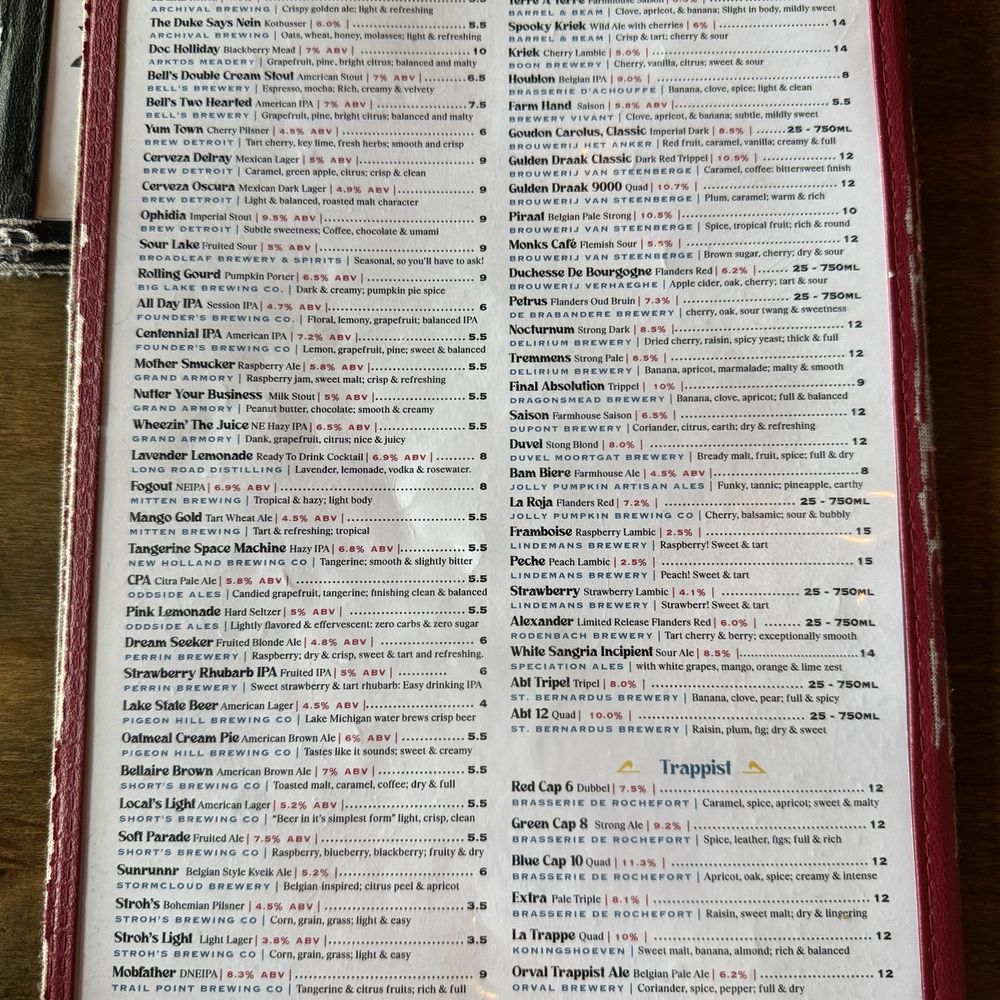 ARCHIVAL BREWING | Crispy golden ale; light & refreshing
The Duke Says Nein Kotbusser | 6.0% | 5.5
ARCHIVAL BREWING | Oats, wheat, honey, molasses; light & refreshing
Doc Holliday Blackberry Mead | 7% ABV | 10
ARKTOS MEADERY | Grapefruit, pine, bright citrus; balanced and malty
Bell's Double Cream Stout American Stout | 7% ABV | 6.5
BELL'S BREWERY | Espresso, mocha; Rich, creamy & velvety
Bell's Two Hearted American IPA | 7% ABV | 7.5
BELL'S BREWERY | Grapefruit, pine, bright citrus; balanced and malty
Yum Town Cherry Pilsner | 4.5% ABV | 6
BREW DETROIT | Tart cherry, key lime, fresh herbs; smooth and crisp
Cerveza Delray Mexican Lager | 5% ABV | 9
BREW DETROIT | Caramel, green apple, citrus; crisp & clean
Cerveza Oscura Mexican Dark Lager | 4.9% ABV | 9
BREW DETROIT | Light & balanced, roasted malt character
Ophidia Imperial Stout | 9.5% ABV | 9
BREW DETROIT | Subtle sweetness; Coffee, chocolate & umami
Sour Lake Fruited Sour | 5% ABV | 9
BROADLEAF BREWERY & SPIRITS | Seasonal, so you'll have to ask!
Rolling Gourd Pumpkin Porter | 6.5% ABV | 9
BIG LAKE BREWING CO. | Dark & creamy; pumpkin pie spice
All Day IPA Session IPA | 4.7% ABV | 6
FOUNDER'S BREWING CO. | Floral, lemony, grapefruit; balanced IPA
Centennial IPA American IPA | 7.2% ABV | 5.5
FOUNDER'S BREWING CO | Lemon, grapefruit, pine; sweet & balanced
Mother Smucker Raspberry Ale | 5.8% ABV | 5.5
GRAND ARMORY | Raspberry jam, sweet malt; crisp & refreshing
Nutter Your Business Milk Stout | 5% ABV | 5.5
GRAND ARMORY | Peanut butter, chocolate; smooth & creamy
Wheezin' The Juice NE Hazy IPA | 6.5% ABV | 5.5
GRAND ARMORY | Dank, grapefruit, citrus; nice & juicy
Lavender Lemonade Ready To Drink Cocktail | 6.9% ABV | 8
LONG ROAD DISTILLING | Lavender, lemonade, vodka & rosewater.
Fogout NEIPA | 6.9% ABV | 8
MITTEN BREWING | Tropical & hazy; light body
Mango Gold Tart Wheat Ale | 4.5% ABV | 5.5
MITTEN BREWING | Tart & refreshing; tropical
Tangerine Space Machine Hazy IPA | 6.8% ABV | 5.5
NEW HOLLAND BREWING CO | Tangerine; smooth & slightly bitter
CPA Citra Pale Ale | 5.8% ABV | 5.5
ODDSIDE ALES | Candied grapefruit, tangerine; finishing clean & balanced
Pink Lemonade Hard Seltzer | 5% ABV | 5.5
ODDSIDE ALES | Lightly flavored & effervescent: zero carbs & zero sugar
Dream Seeker Fruited Blonde Ale | 4.8% ABV | 6
PERRIN BREWERY | Raspberry; dry & crisp, sweet & tart and refreshing.
Strawberry Rhubarb IPA Fruited IPA | 5% ABV | 6
PERRIN BREWERY | Sweet strawberry & tart rhubarb: Easy drinking IPA
Lake State Beer American Lager | 4.5% ABV | 4
PIGEON HILL BREWING CO | Lake Michigan water brews crisp beer
Oatmeal Cream Pie American Brown Ale | 6% ABV | 5.5
PIGEON HILL BREWING CO | Tastes like it sounds; sweet & creamy
Bellaire Brown American Brown Ale | 7% ABV | 5.5
SHORT'S BREWING CO | Toasted malt, caramel, coffee; dry & full
Local's Light American Lager | 5.2% ABV | 5.5
SHORT'S BREWING CO | "Beer in it's simplest form" light, crisp, clean
Soft Parade Fruited Ale | 7.5% ABV | 5.5
SHORT'S BREWING CO | Raspberry, blueberry, blackberry; fruity & dry
Sunrunnr Belgian Style Kveik Ale | 5.2% | 6
STORMCLOUD BREWERY | Belgian-inspired; citrus peel & apricot
Stroh's Bohemian Pilsner | 4.5% ABV | 3.5
STROH'S BREWING CO | Corn, grain, grass; light & easy
Stroh's Light Light Lager | 3.8% ABV | 3.5
STROH'S BREWING CO | Corn, grain, grass; light & easy
Mobfather DNEIPA | 8.3% ABV | 9
TRAIL POINT BREWING CO | Tangerine & citrus fruits; rich & full
BARREL & BEAM | Clove, apricot, & banana; Slight in body, mildly sweet
Spooky Kriek Wild Ale with cherries | 6% | 14
BARREL & BEAM | Crisp & tart; cherry & sour
Kriek Cherry Lambic | 5.0% | 14
BOON BREWERY | Cherry, vanilla, citrus; sweet & sour
Houblon Belgian IPA | 9.0% | 8
BRASSERIE D'ACHOUFFE | Banana, clove, spice; light & clean
Farm Hand Saison | 5.8% ABV | 5.5
BREWERY VIVANT | Clove, apricot, & banana; subtle, mildly sweet
Goudon Carolus, Classic Imperial Dark | 8.5% | 25 - 750ML
BROUWERIJ HET ANKER | Red fruit, caramel, vanilla; creamy & full
Gulden Draak Classic Dark Red Trippel | 10.5% | 12
BROUWERIJ VAN STEENBERGE | Caramel, coffee: bittersweet finish
Gulden Draak 9000 Quad | 10.7% | 12
BROUWERIJ VAN STEENBERGE | Plum, caramel; warm & rich
Piraat Belgian Pale Strong | 10.5% | 10
BROUWERIJ VAN STEENBERGE | Spice, tropical fruit; rich & round
Monks Café Flemish Sour | 5.5% | 12
BROUWERIJ VAN STEENBERGE | Brown sugar, cherry; dry & sour
Duchesse De Bourgogne Flanders Red | 6.2% | 25 - 750ML
BROUWERIJ VERHAEGHE | Apple cider, oak, cherry; tart & sour
Petrus Flanders Oud Bruin | 7.3% | 25 - 750ML
DE BRABANDERE BREWERY | cherry, oak, sour twang & sweetness
Nocturnum Strong Dark | 8.5% | 12
DELIRIUM BREWERY | Dried cherry, raisin, spicy yeast; thick & full
Tremmens Strong Pale | 8.5% | 12
DELIRIUM BREWERY | Banana, apricot, marmalade; malty & smooth
Final Absolution Trippel | 10% | 9
DRAGONSMEAD BREWERY | Banana, clove, apricot; full & balanced
Saison Farmhouse Saison | 6.5% | 12
DUPONT BREWERY | Coriander, citrus, earth; dry & refreshing
Duvel Stong Blond | 8.0% | 12
DUVEL MOORTGAT BREWERY | Bready malt, fruit, spice; full & dry
Bam Biere Farmhouse Ale | 4.5% ABV | 8
JOLLY PUMPKIN ARTISAN ALES | Funky, tannic; pineapple, earthy
La Roja Flanders Red | 7.2% | 25 - 750ML
JOLLY PUMPKIN BREWING CO | Cherry, balsamic; sour & bubbly
Framboise Raspberry Lambic | 2.5% | 15
LINDEMANS BREWERY | Raspberry! Sweet & tart
Peche Peach Lambic | 2.5% | 15
LINDEMANS BREWERY | Peach! Sweet & tart
Strawberry Strawberry Lambic | 4.1% | 25 - 750ML
LINDEMANS BREWERY | Strawberr! Sweet & tart
Alexander Limited Release Flanders Red | 6.0% | 25 - 750ML
RODENBACH BREWERY | Tart cherry & berry; exceptionally smooth
White Sangria Incipient Sour Ale | 8.5% | 14
SPECIATION ALES | with white grapes, mango, orange & lime zest
Abt Tripel Tripel | 8.0% | 25 - 750ML
ST. BERNARDUS BREWERY | Banana, clove, pear; full & spicy
Abt 12 Quad | 10.0% | 25 - 750ML
ST. BERNARDUS BREWERY | Raisin, plum, fig; dry & sweet
Trappist
Red Cap 6 Dubbel | 7.5% | 12
BRASSERIE DE ROCHEFORT | Caramel, spice, apricot; sweet & malty
Green Cap 8 Strong Ale | 9.2% | 12
BRASSERIE DE ROCHEFORT | Spice, leather, figs; full & rich
Blue Cap 10 Quad | 11.3% | 12
BRASSERIE DE ROCHEFORT | Apricot, oak, spice; creamy & intense
Extra Pale Triple | 8.1% | 12
BRASSERIE DE ROCHEFORT | Raisin, sweet malt; dry & lingering
La Trappe Quad | 10% | 12
KONINGSHOEVEN | Sweet malt, banana, almond; rich & balanced
Orval Trappist Ale Belgian Pale Ale | 6.2% | 12
ORVAL BREWERY | Coriander, spice, pepper; full & dry